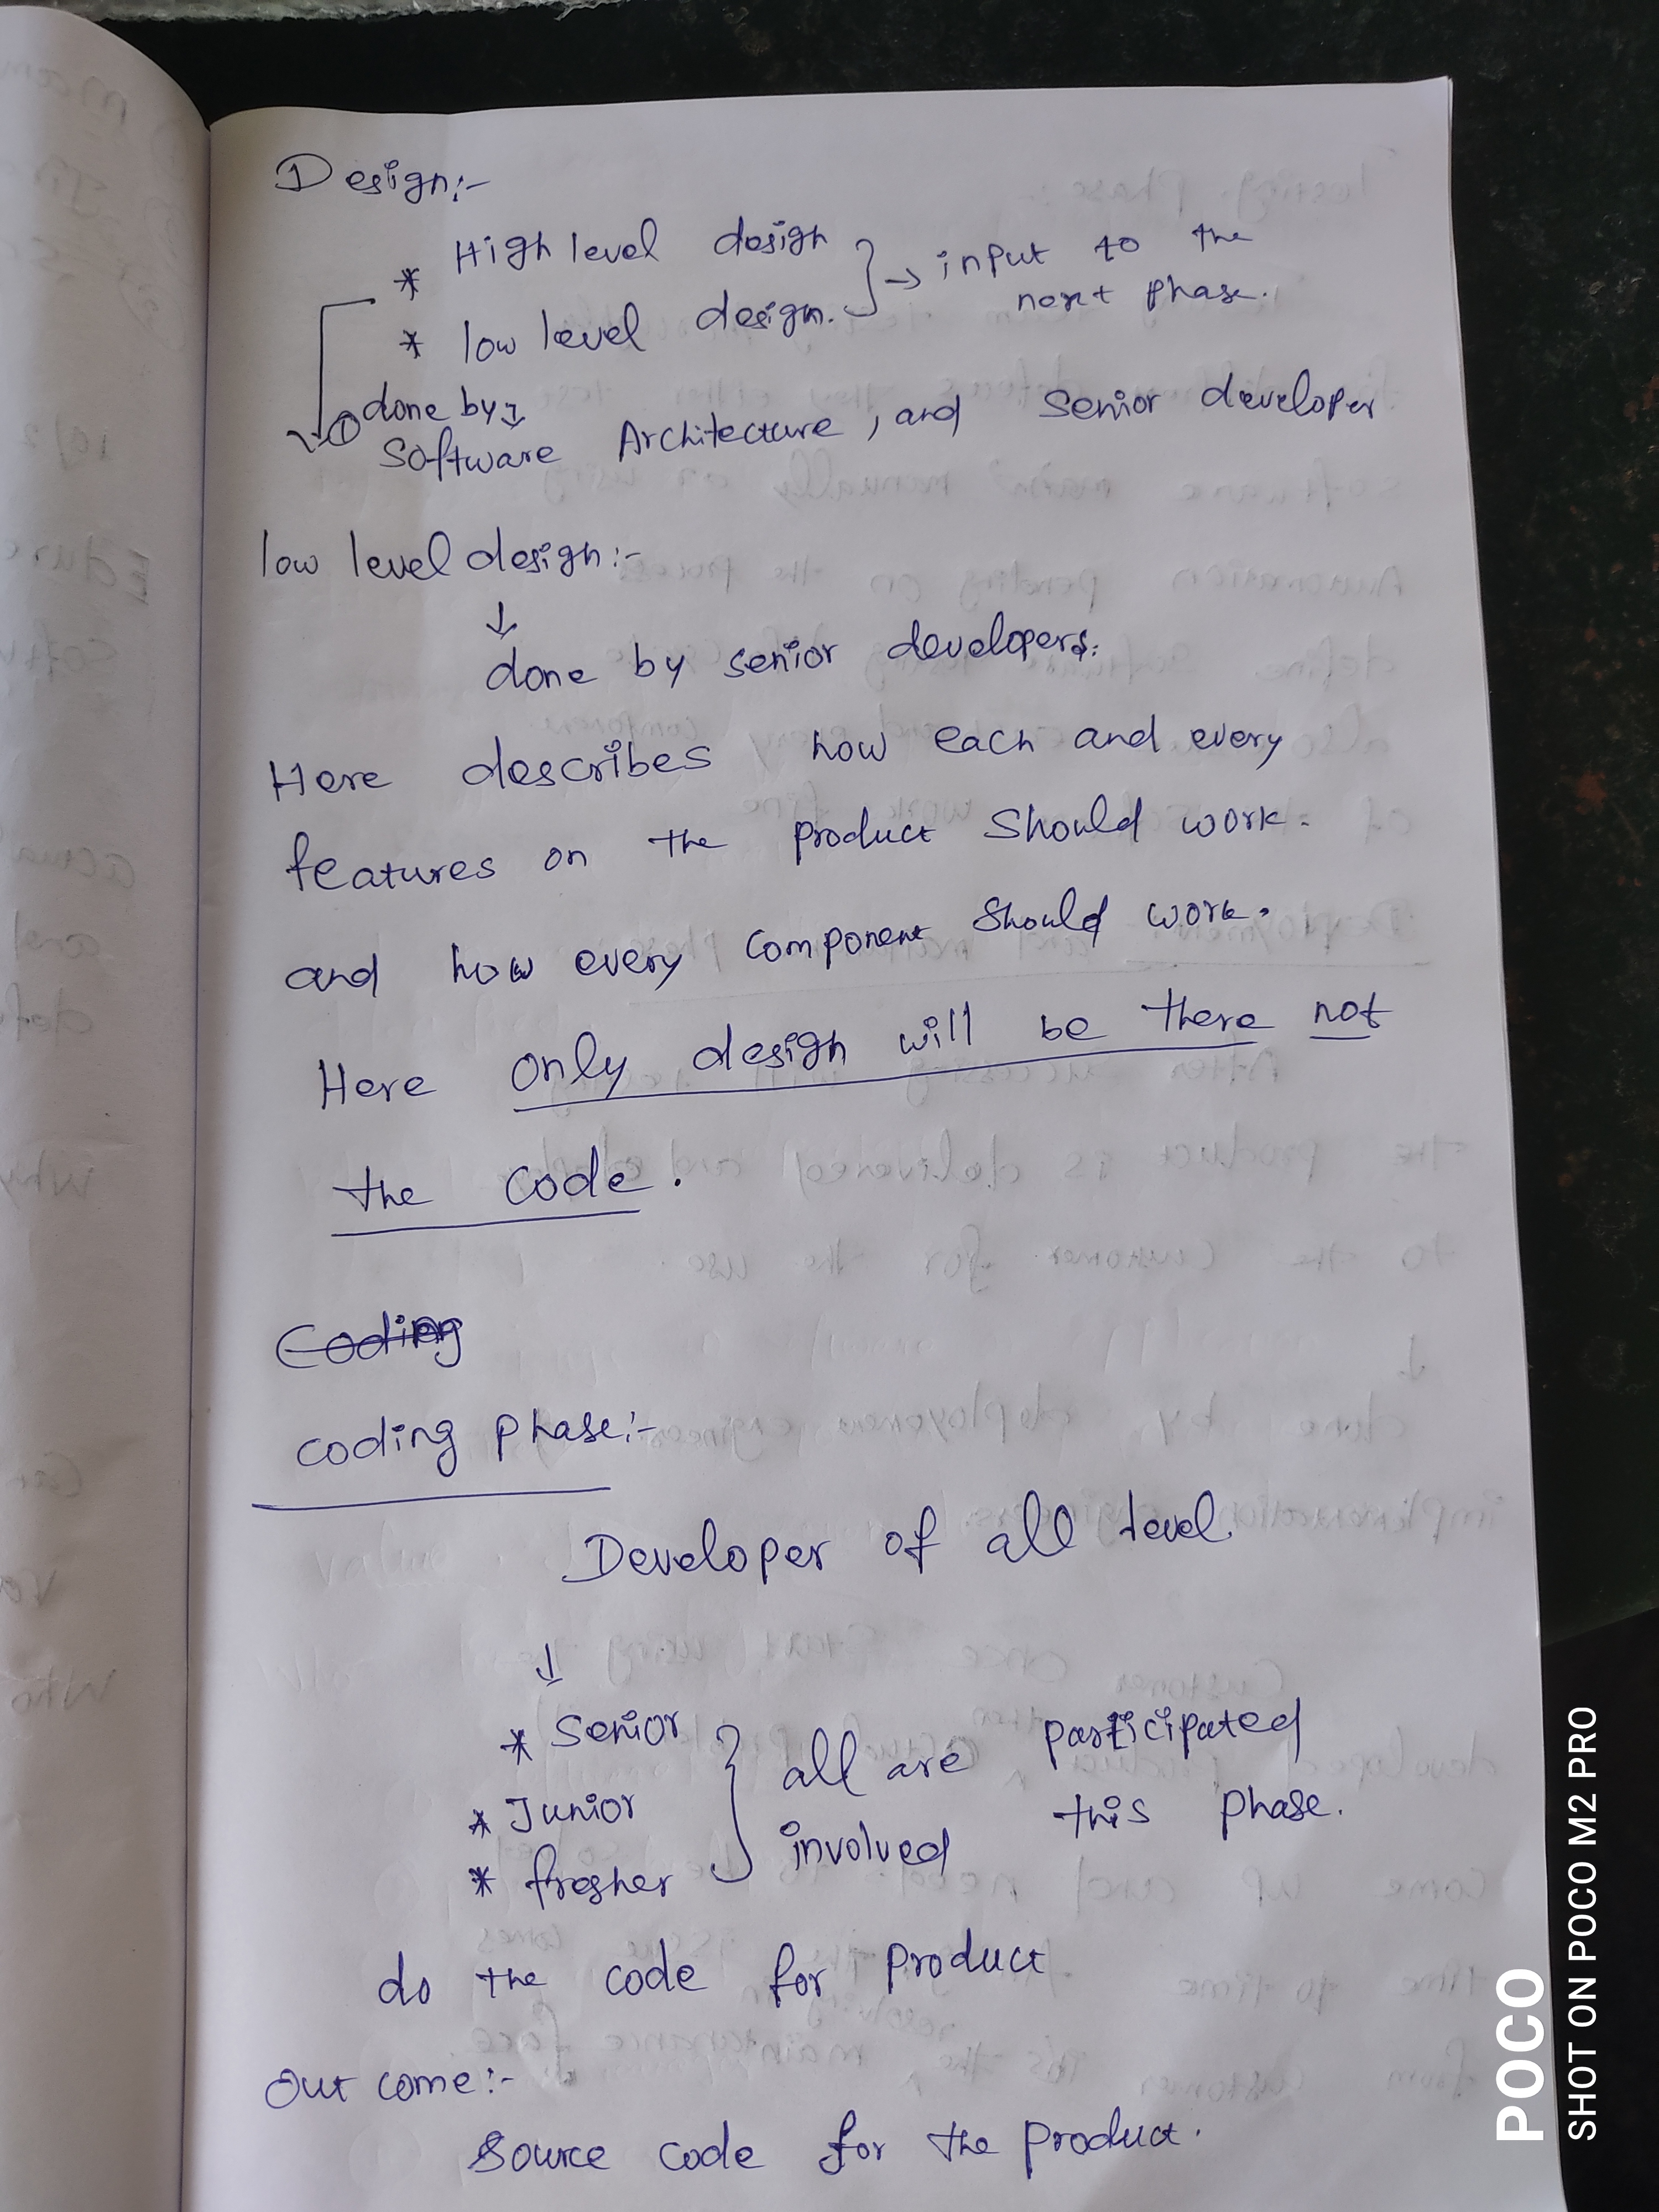 Design:-
* High level design } → input to the
* low level design. next phase.
① done by ↓
Software Architecture, and Senior developer
low level design:-
↓
done by senior developers.
Here describes how each and every
features on the product should work.
and how every component should work.
Here only design will be there not
the code.
Coding
coding phase:-
Developer of all level.
↓
* Senior } all are participated
* Junior involved this phase.
* fresher
do the code for product
Out come:-
Source code for the product.
POCO
SHOT ON POCO M2 PRO